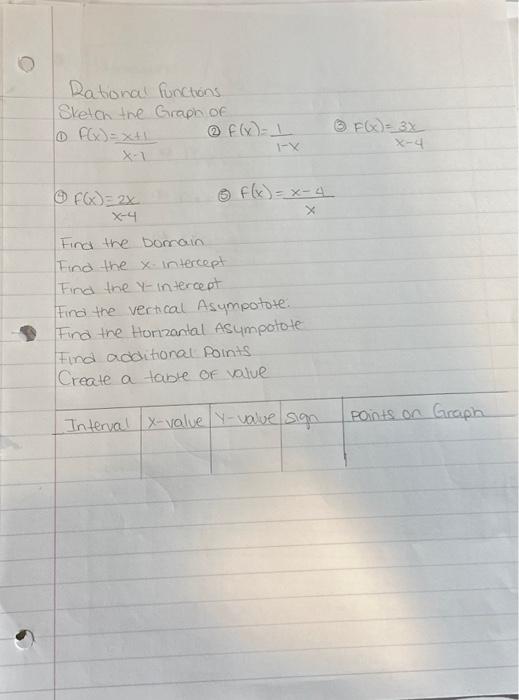 Rational functions
Sketch the Graph of
① f(x) = x+1/x-1 ② f(x) = 1/1-x ③ f(x) = 3x/x-4
④ f(x) = 2x/x-4 ⑤ f(x) = x-4/x
Find the Domain
Find the x-intercept
Find the Y-intercept
Find the vertical Asympotote:
Find the Horizantal Asympotote
Find additional Points
Create a table of value
Interval X-value Y-value sign points on Graph